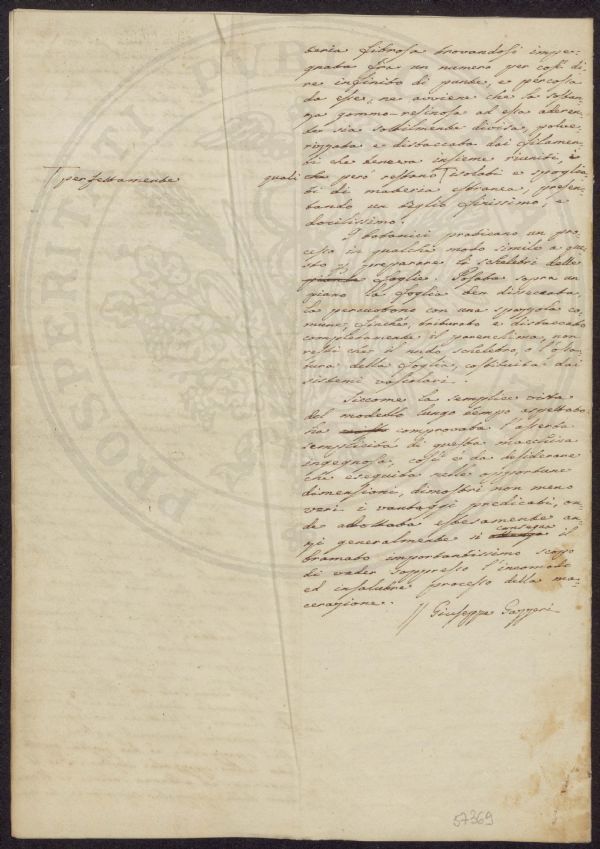 teria fibrosa trovandosi impe-
gnata fra un numero per così di-
re infinito di punte, e percossa
da esse, ne avviene che la sostan-
za gommo-resinosa ad essa aderen-
te sia sottilmente divisa, polve-
rizzata e distaccata dai filamen-
ti che teneva insieme riuniti, i
quali che però restano T isolati e spoglia-
T perfettamente
ti di materia estranea, presen-
tando un tiglio finissimo, e
docilissimo.
I botanici praticano un pro-
cesso in qualche modo simile a que-
sto per preparare gli scheletri delle
foglie. Posata sopra un
piano la foglia ben disseccata,
la percuotono con una spazzola co-
mune, finchè, triturato e distaccato
completamente il parenchima, non
resti che il nudo scheletro, o l'ossa-
tura della foglia, costituita dai
sistemi vascolari.
Siccome la semplice vista
del modello lungo tempo aspettato
ha comprovata l'asserta
semplicità di questa macchina
ingegnosa, così è da desiderare
che eseguita nelle opportune
dimensioni, dimostri non meno
veri i vantaggi predicati, on-
de adottata estesamente an-
zi generalmente si consegua il
bramato importantissimo scopo
di veder soppresso l'incomodo
ed insalubre processo della ma-
cerazione.
Giuseppe Gazzeri
57369
PROSPERITATI PVBLI